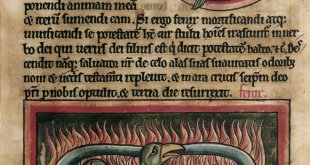 ponendi animam mea
& iterum sumendi eam. Si ergo fenix mortificandi atq;
uiuificandi se potestatē habet cur stulti hoīes irascunt̄ in uerbo
dei qui uerus dei filius est q̇ dicit potestatē habeo & c̄. Des
cendit nāq; saluator nr̄ de celo alas suas suauitatis odorib;
noui & ueteris testamti repleuit, & in ara crucis seip̄m deo
pri p nobis optulit, & tercia die resurrexit. fenix